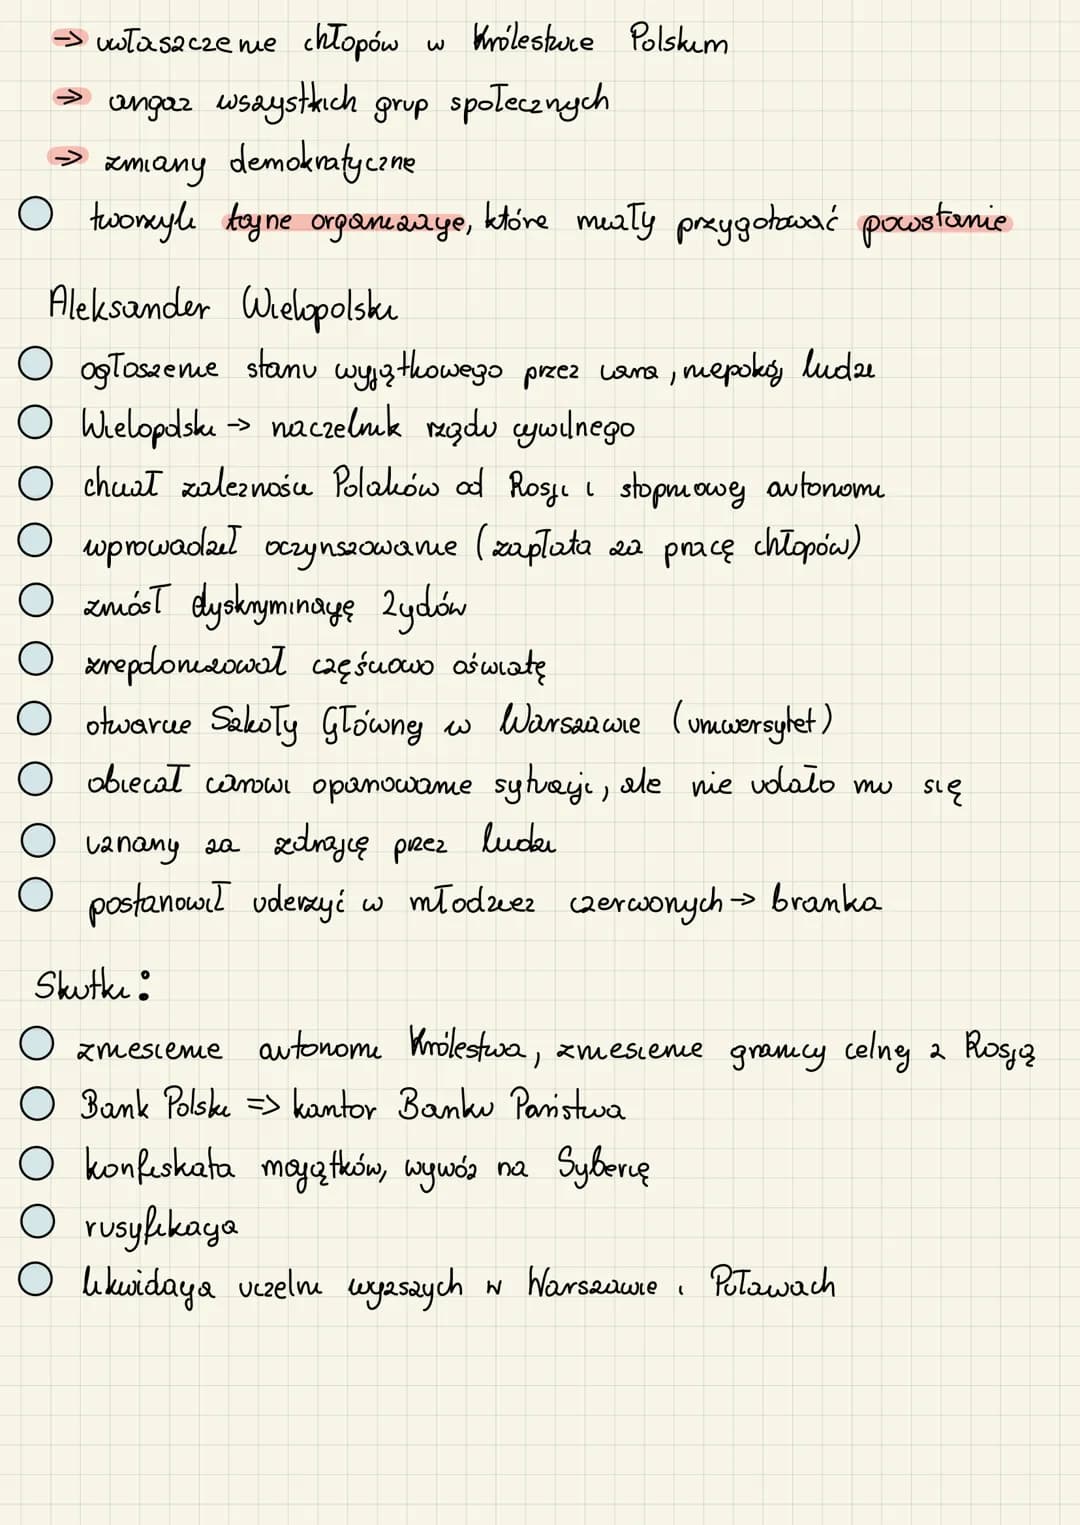 → uwłaszczenie chłopów w Królestwie Polskim
→ angaż wszystkich grup społecznych
→ zmiany demokratyczne
tworzyli tajne organizacje, które miały przygotować powstanie
Aleksander Wielopolski
ogłoszenie stanu wyjątkowego przez cara, niepokój ludzi
Wielopolski → naczelnik rządu cywilnego
chciał zależności Polaków od Rosji i stopniowej autonomii
wprowadził oczynszowanie (zapłata za pracę chłopów)
zniósł dyskryminację Żydów
zrepolonizował częściowo oświatę
otwarcie Szkoły Głównej w Warszawie (uniwersytet)
obiecał carowi opanowanie sytuacji, ale nie udało mu się
uznany za zdrajcę przez ludzi
postanowił uderzyć w młodzież czerwonych → branka
Skutki:
zniesienie autonomii Królestwa, zniesienie granicy celnej z Rosją
Bank Polski => kantor Banku Państwa
konfiskata majątków, wywóz na Syberię
rusyfikacja
likwidacja uczelni wyższych w Warszawie i Puławach